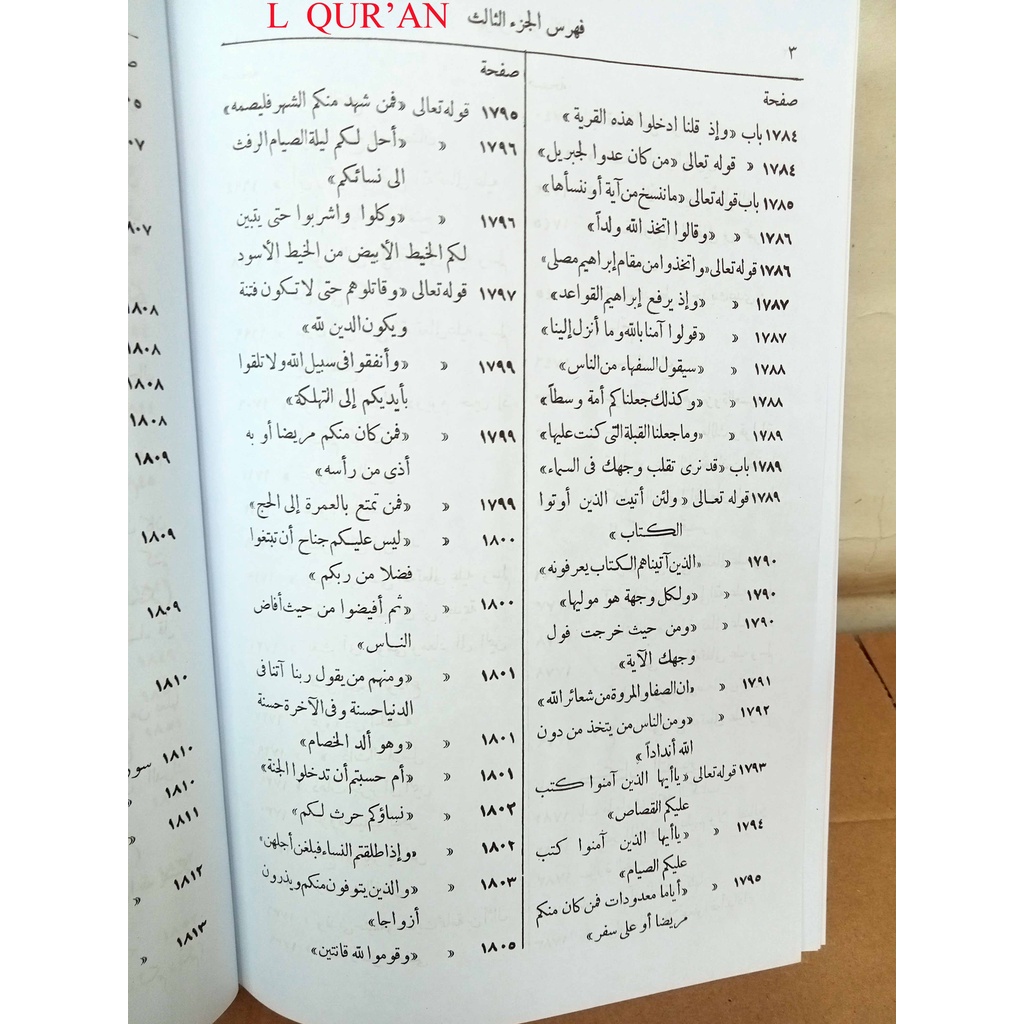 L QUR’AN
فهرس الجزء الثالث
٣
صفحة
١٧٨٤ باب «وإذ قلنا ادخلوا هذه القرية»
١٧٨٤ « قوله تعالى «من كان عدوا لجبريل»
١٧٨٥ باب قوله تعالى «ما ننسخ من آية أو ننسأها»
١٧٨٦ « « «وقالوا اتخذ الله ولداً»
١٧٨٦ قوله تعالى «واتخذوا من مقام إبراهيم مصلى»
١٧٨٧ « «وإذ يرفع إبراهيم القواعد»
١٧٨٧ « «قولوا آمنا بالله وما أنزل إلينا»
١٧٨٨ « «سيقول السفهاء من الناس»
١٧٨٨ « «وكذلك جعلناكم أمة وسطاً»
١٧٨٩ « «وما جعلنا القبلة التى كنت عليها»
١٧٨٩ باب «قد نرى تقلب وجهك فى السماء»
١٧٨٩ قوله تعالى «ولئن أتيت الذين أوتوا
الكتاب»
١٧٩٠ « «الذين آتيناهم الكتاب يعرفونه»
١٧٩٠ « «ولكل وجهة هو موليها»
١٧٩٠ « «ومن حيث خرجت فول
وجهك الآية»
١٧٩١ « «ان الصفا والمروة من شعائر الله»
١٧٩٢ « «ومن الناس من يتخذ من دون
الله أنداداً»
١٧٩٣ قوله تعالى «ياأيها الذين آمنوا كتب
عليكم القصاص»
١٧٩٤ « «ياأيها الذين آمنوا كتب
عليكم الصيام»
١٧٩٥ « «أياما معدودات فمن كان منكم
مريضا أو على سفر»
صفحة
١٧٩٥ قوله تعالى «فمن شهد منكم الشهر فليصمه»
١٧٩٦ « «أحل لكم ليلة الصيام الرفث
الى نسائكم»
١٧٩٦ « «وكلوا واشربوا حتى يتبين
لكم الخيط الأبيض من الخيط الأسود
١٧٩٧ قوله تعالى «وقاتلوهم حتى لا تكون فتنة
ويكون الدين لله»
١٧٩٩ « «وأنفقوا فى سبيل الله ولا تلقوا
بأيديكم إلى التهلكة»
١٧٩٩ « «فمن كان منكم مريضا أو به
أذى من رأسه»
١٧٩٩ « «فمن تمتع بالعمرة إلى الحج»
١٨٠٠ « «ليس عليكم جناح أن تبتغوا
فضلا من ربكم»
١٨٠٠ « «ثم أفيضوا من حيث أفاض
الناس»
١٨٠١ « «ومنهم من يقول ربنا آتنا فى
الدنيا حسنة وفى الآخرة حسنة
١٨٠١ « «وهو ألد الخصام»
١٨٠١ « «أم حسبتم أن تدخلوا الجنة»
١٨٠٢ « «نساؤكم حرث لكم»
١٨٠٢ « «وإذا طلقتم النساء فبلغن أجلهن»
١٨٠٣ « «والذين يتوفون منكم ويذرون
أزواجا»
١٨٠٥ « «وقوموا لله قانتين»
١٨٠٨
١٨٠٨
١٨٠٨
١٨٠٨
١٨٠٩
١٨٠٩
١٨٠٩
١٨١٠
١٨١٠
١٨١٠
١٨١١
١٨١٢
١٨١٣